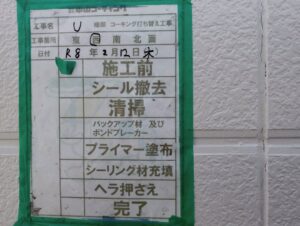 工事名 U 様邸 コーキング打ち替え工事
工事箇所 東 西 南 北 面
日付 R8年2月12日(木)
施工前
シール撤去
清掃
バックアップ材 及び
ボンドブレーカー
プライマー塗布
シーリング材充填
ヘラ押さえ
完了